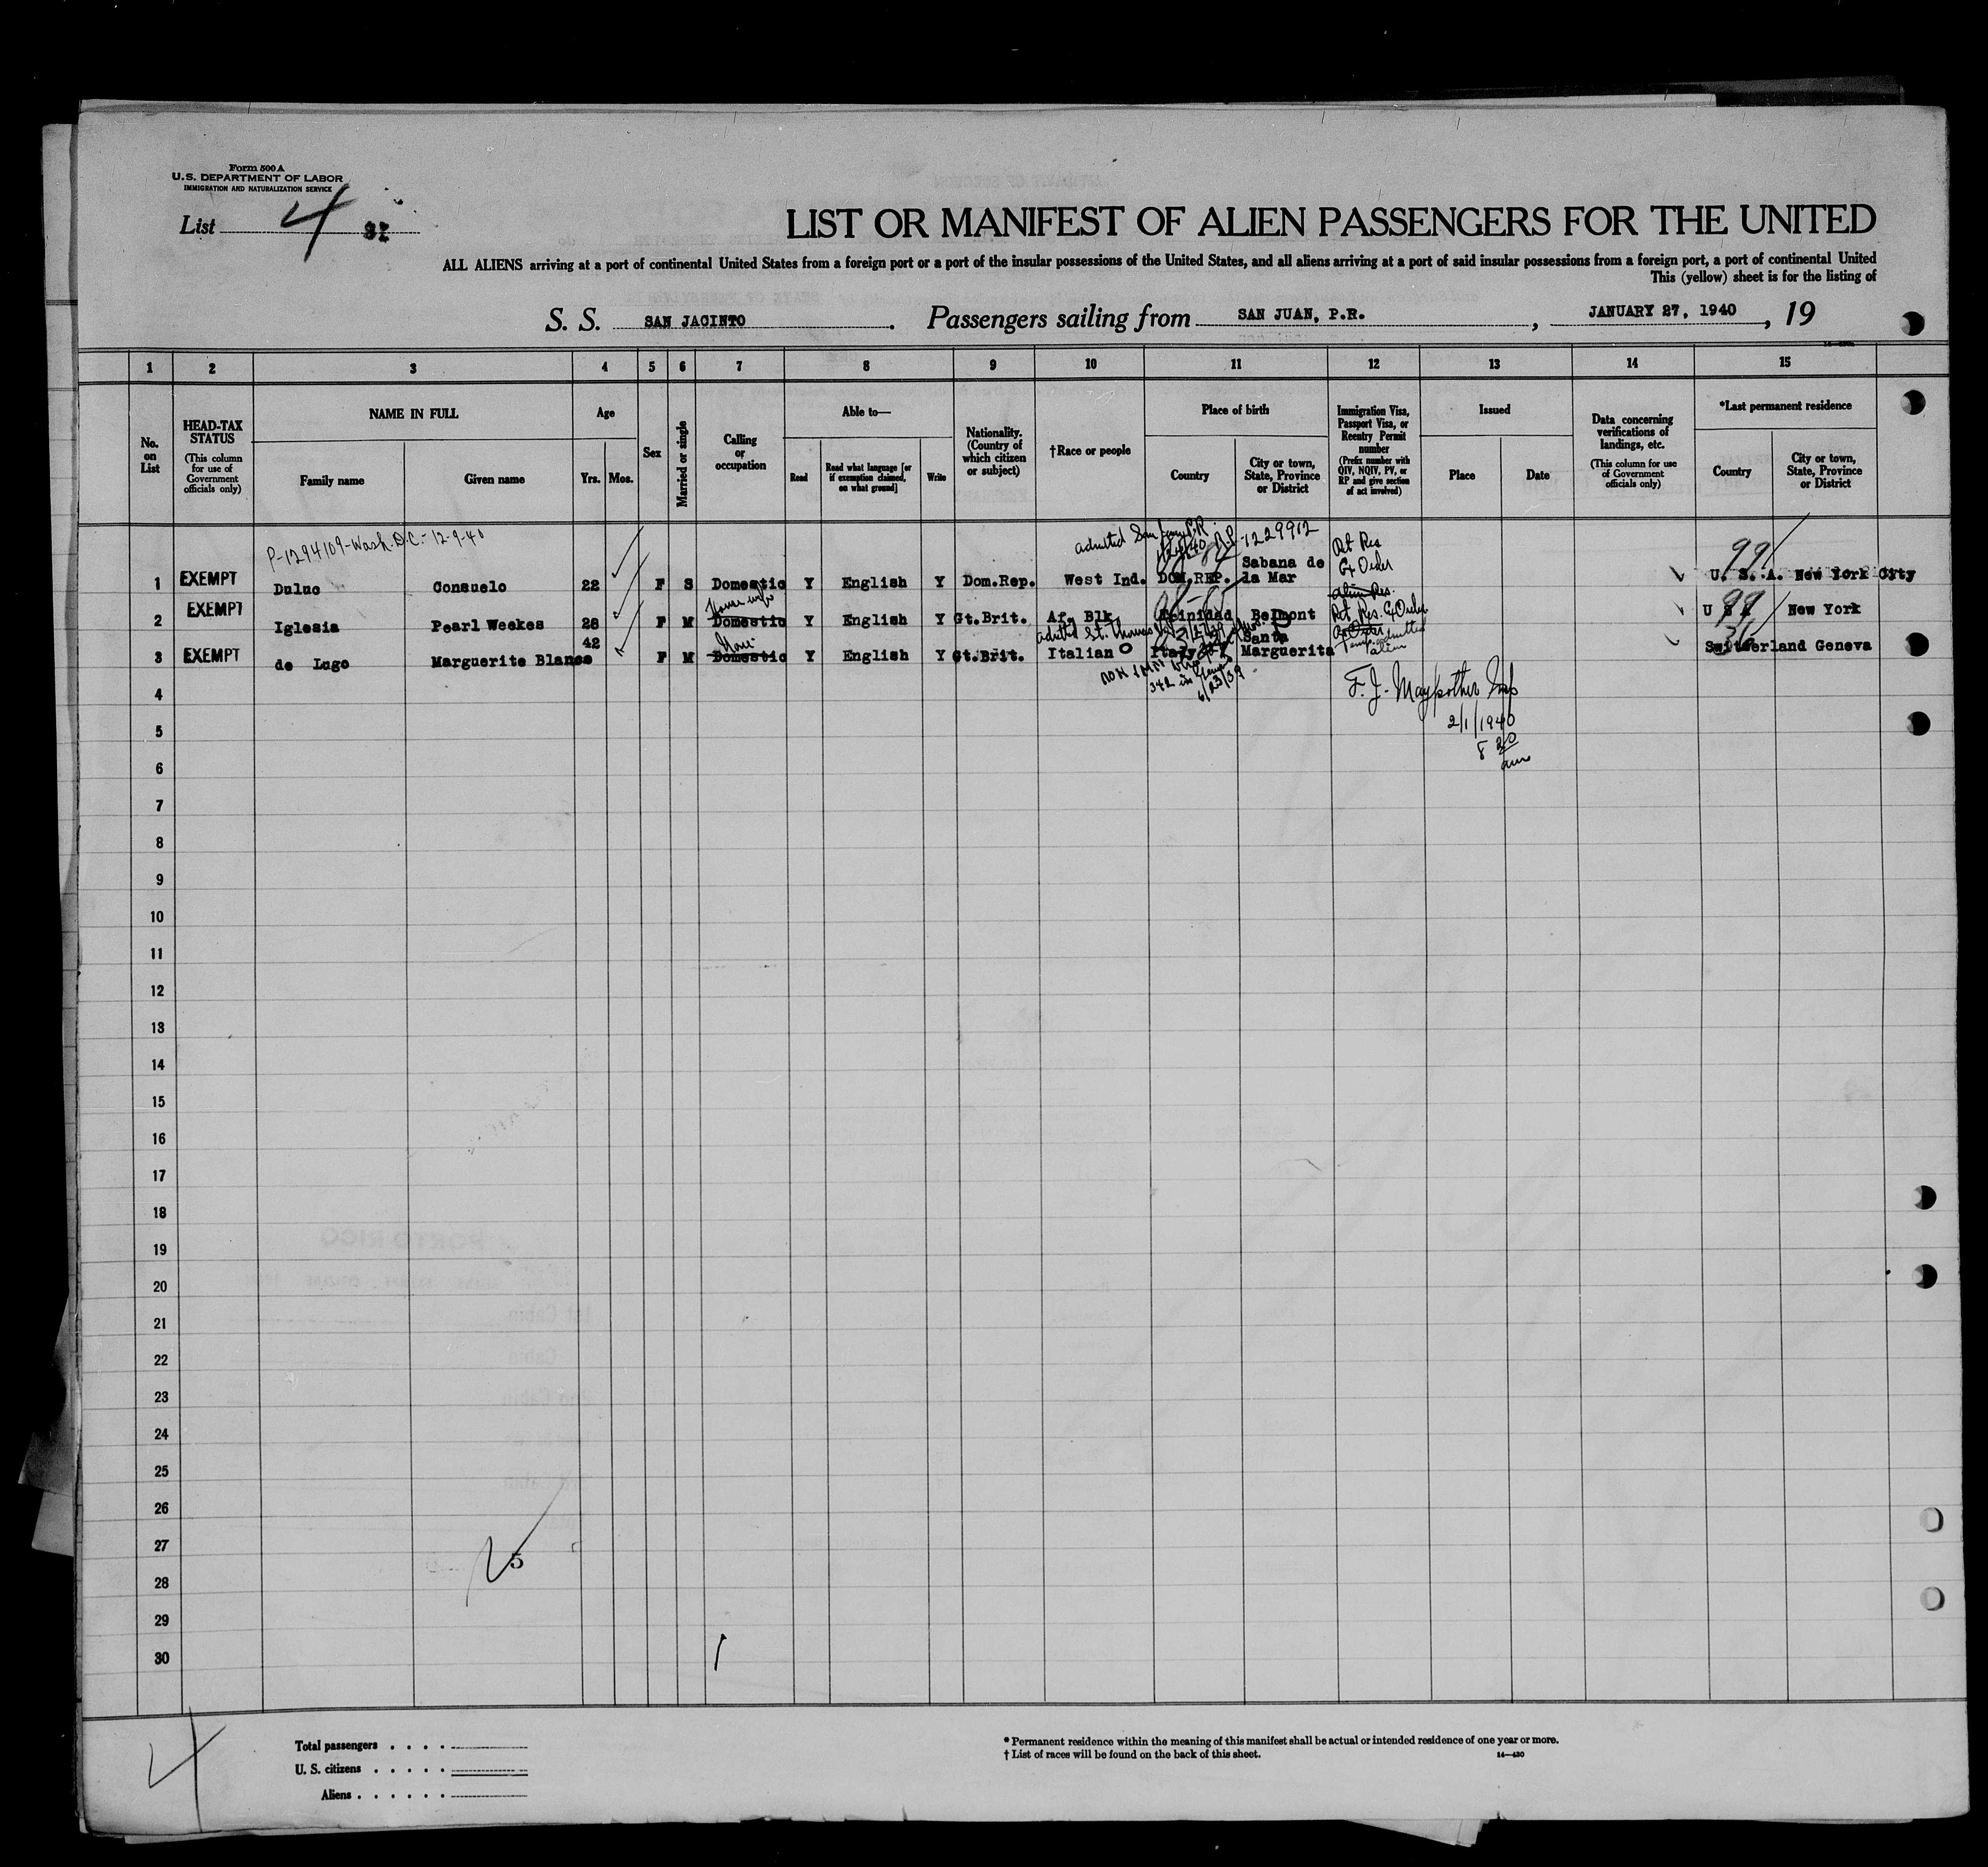 Form 500 A
U.S. DEPARTMENT OF LABOR
IMMIGRATION AND NATURALIZATION SERVICE
List 4
LIST OR MANIFEST OF ALIEN PASSENGERS FOR THE UNITED
ALL ALIENS arriving at a port of continental United States from a foreign port or a port of the insular possessions of the United States, and all aliens arriving at a port of said insular possessions from a foreign port, a port of continental United
This (yellow) sheet is for the listing of
S. S. SAN JACINTO. Passengers sailing from SAN JUAN, P.R., JANUARY 27, 1940, 19
1 2 3 4 5 6 7 8 9 10 11 12 13 14 15
No. on List
HEAD-TAX STATUS
(This column for use of Government officials only)
NAME IN FULL
Family name
Given name
Age
Yrs. Mos.
Sex
Married or single
Calling or occupation
Able to—
Read
Read what language [or if exemption claimed, on what ground]
Write
Nationality. (Country of which citizen or subject)
†Race or people
Place of birth
Country
City or town, State, Province or District
Immigration Visa, Passport Visa, or Reentry Permit number
(Prefix number with QIV, NQIV, PV, or RP and give section of act involved)
Issued
Place
Date
Data concerning verifications of landings, etc.
(This column for use of Government officials only)
*Last permanent residence
Country
City or town, State, Province or District
P-1294109-Wash.D.C.-12-9-40
admitted San Juan P.R. 1/24/40 R.P-1229912
1 EXEMPT Duluc Consuelo 22 F S Domestic Y English Y Dom.Rep. West Ind. DOM.REP. Sabana de la Mar Ret Res Ex Order 99 U. S. A. New York City
2 EXEMPT Iglesia Pearl Weekes 28 F M Domestic House wife Y English Y Gt.Brit. Af. Blk. Trinidad Belmont Alien Res. Ret Res. Ex Order 99 U S A New York
admitted St. Thomas
3 EXEMPT de Lugo Marguerite Blance 42 F M Domestic None Y English Y Gt.Brit. Italian Italy Santa Marguerita Ex Order Temp admitted alien Switzerland Geneva
342 in
6/23/39
F. J. Maypother Insp
2/1/1940
8 30
am
4
5
6
7
8
9
10
11
12
13
14
15
16
17
18
19
20
21
22
23
24
25
26
27
28
29
30
4
Total passengers
U. S. citizens
Aliens
* Permanent residence within the meaning of this manifest shall be actual or intended residence of one year or more.
† List of races will be found on the back of this sheet.
14—430